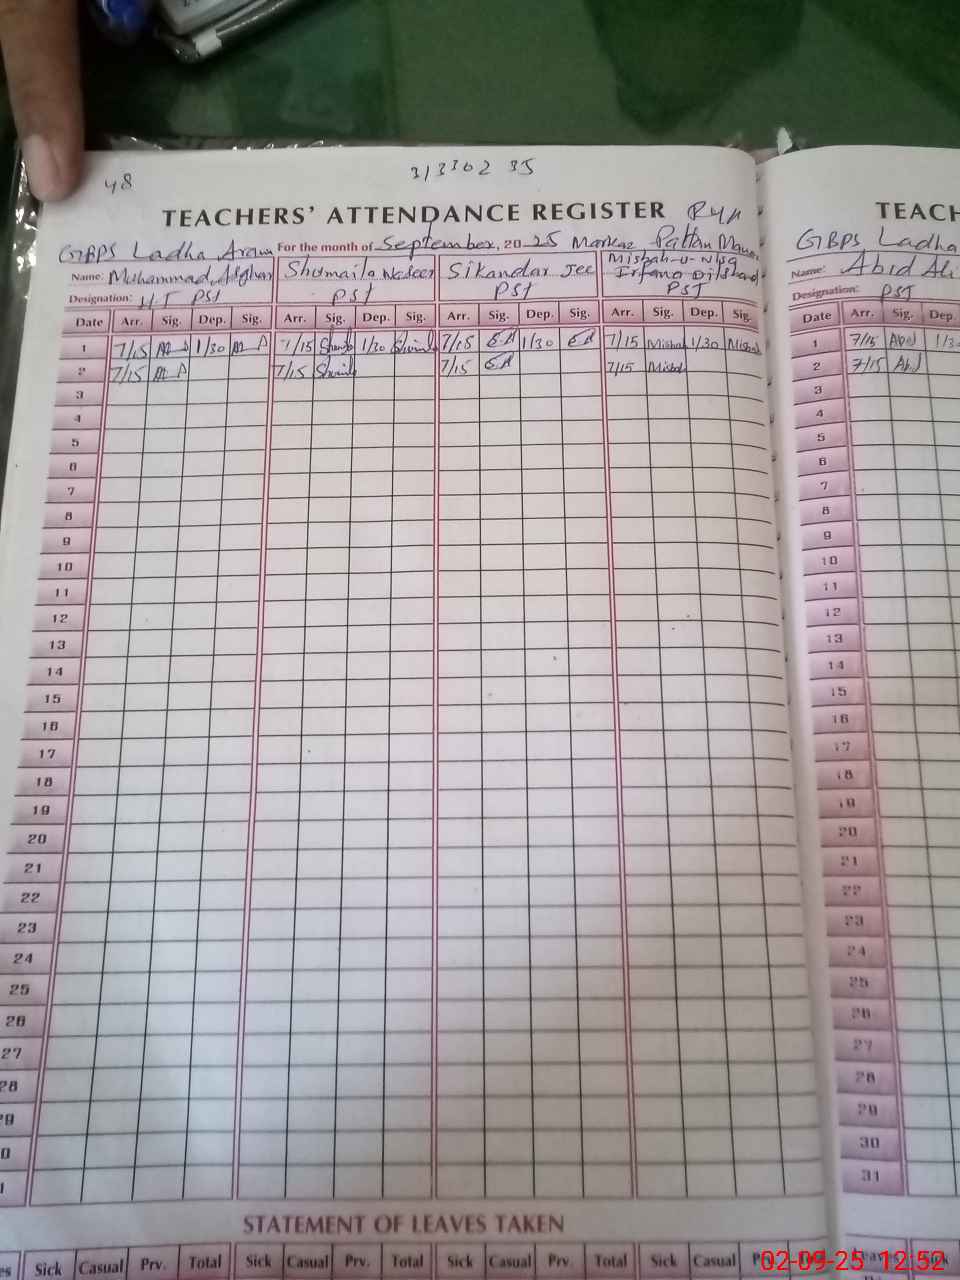 48
31330235
TEACHERS' ATTENDANCE REGISTER RYK
GBPS Ladha Arain For the month of September, 2025 Markaz Pattan Manara
Name: Muhammad Asghar Shumaila Naseer Sikandar Jee Misbah-u-Nisa Irfana Dilshad
Designation: H.T PST PST PST PST
Date Arr. Sig. Dep. Sig. Arr. Sig. Dep. Sig. Arr. Sig. Dep. Sig. Arr. Sig. Dep. Sig.
1 7/15 1/30 7/15 1/30 7/15 1/30 7/15 Misbah 1/30 Misbah
2 7/15 7/15 7/15 7/15 Misbah
3
4
5
6
7
8
9
10
11
12
13
14
15
16
17
18
19
20
21
22
23
24
25
26
27
28
29
0
1
STATEMENT OF LEAVES TAKEN
es Sick Casual Prv. Total Sick Casual Prv. Total Sick Casual Prv. Total Sick Casual
TEACH
GBPS Ladha
Name: Abid Ali
Designation: PST
Date Arr. Sig. Dep.
1 7/15 Abid 1/30
2 7/15 Abid
3
4
5
6
7
8
9
10
11
12
13
14
15
16
17
18
19
20
21
22
23
24
25
26
27
28
29
30
31
Leaves Sick
02-09-25 12:52